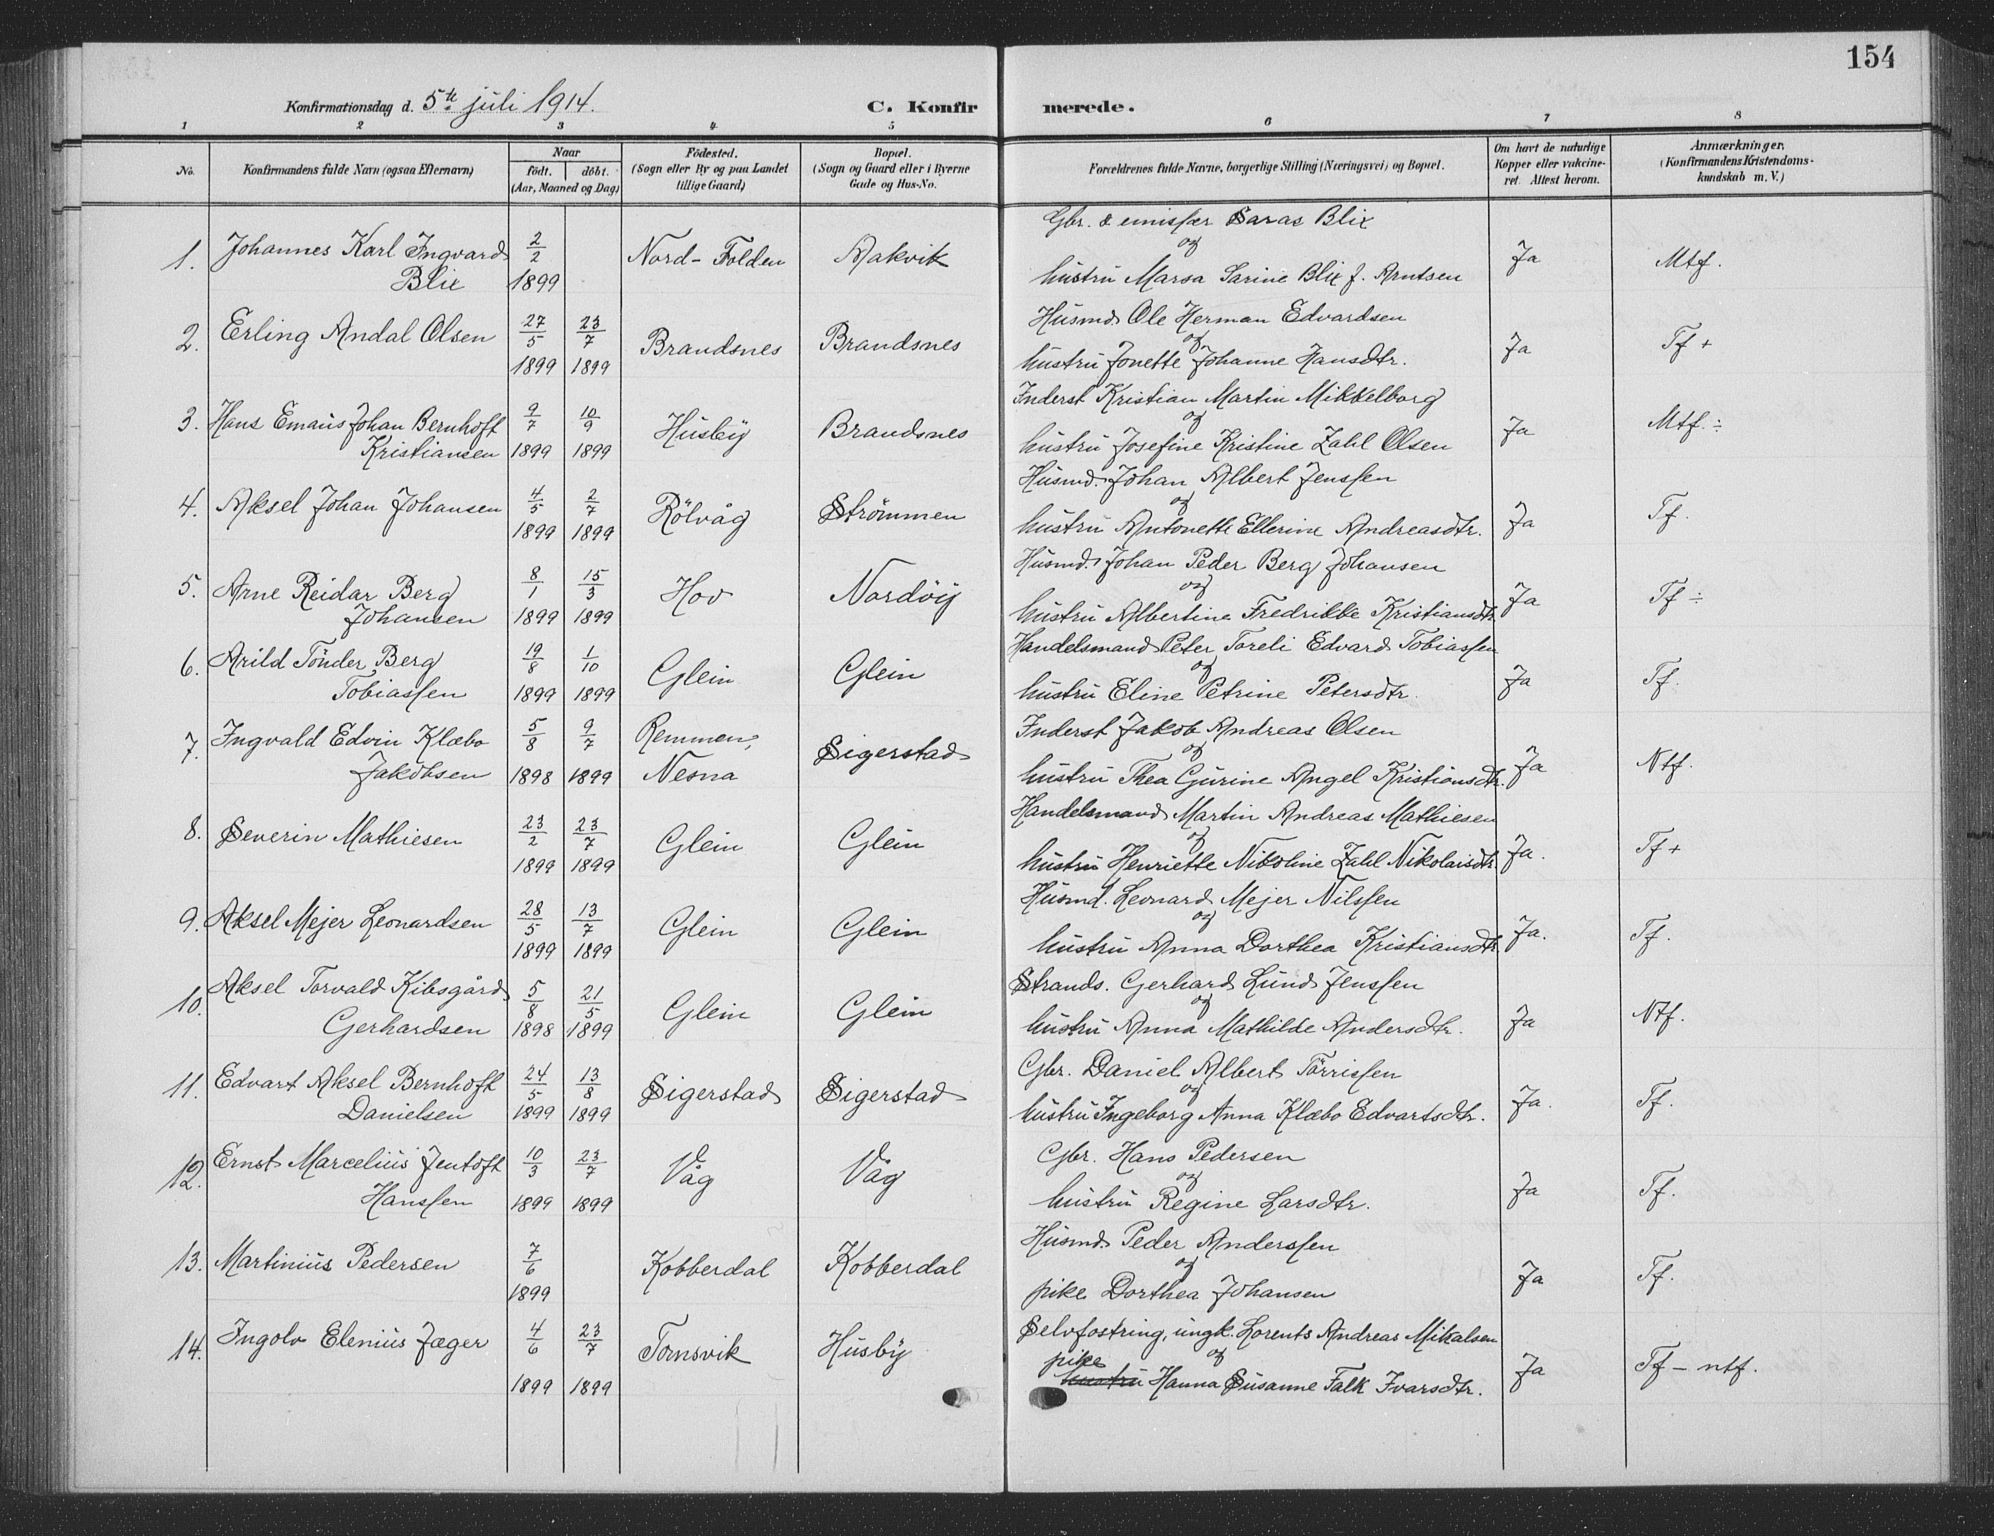 154
Konfirmationsdag d. 5te juli 1914. C. Konfirmerede.
1 2 3 4 5 6 7 8
No. Konfirmandens fulde Navn (ogsaa Efternavn) Naar født. døbt. (Aar, Maaned og Dag) Fødested. (Sogn eller By og paa Landet tillige Gaard) Bopæl. (Sogn og Gaard eller i Byerne Gade og Hus-No. Forældrenes fulde Navne, borgerlige Stilling (Næringsvei) og Bopæl. Om havt de naturlige Kopper eller vakcineret. Attest herom. Anmærkninger. (Konfirmandens Kristendomskundskab m. V.)
1. Johannes Karl Ingvard Blix 2/2 1899 Nord-Folden Aakvik Gbr. & emissær Saras Blix og hustru Marsa Sarine Blix f. Arntsen Ja Mtf.
2. Erling Andal Olsen 27/5 1899 23/7 1899 Brandsnes Brandsnes Husmd. Ole Herman Edvardsen og hustru Jonette Johanne Hansdtr. Ja Tf +
3. Hans Emaus Johan Bernhoft Kristiansen 9/7 1899 10/9 1899 Husby Brandsnes Inderst Kristian Martin Mikkelborg og hustru Josefine Kristine Zahl Olsen Ja Mtf. ÷
4. Aksel Johan Johansen 4/5 1899 2/7 1899 Rölvåg Strömmen Husmd. Johan Albert Jenssen og hustru Antonette Ellerine Andreasdtr. Ja Tf.
5. Arne Reidar Berg Johansen 8/1 1899 15/3 1899 Hov Nordöy Husmd. Johan Peder Berg Johansen og hustru Albertine Fredrikke Kristiansdtr Ja Tf ÷
6. Arild Tönder Berg Tobiassen 19/8 1899 1/10 1899 Glein Glein Handelsmand Peter Toreli Edvard Tobiassen og hustru Eline Petrine Petersdtr. Ja Tf.
7. Ingvald Edvin Klæbo Jakobsen 5/8 1898 9/7 1899 Remmen, Nesna Sigerstad Inderst Jakob Andreas Olsen og hustru Thea Gurine Angel Kristiansdtr. Ja Ntf.
8. Severin Mathiesen 23/2 1899 23/7 1899 Glein Glein Handelsmand Martin Andreas Mathiesen og hustru Henriette Nikoline Zahl Nikolaisdtr Ja. Tf +
9. Aksel Mejer Leonardsen 28/5 1899 13/7 1899 Glein Glein Husmd. Leonard Mejer Nilssen og hustru Anna Dorthea Kristiansdtr Ja. Tf.
10. Aksel Torvald Kibsgård Gerhardsen 5/8 1898 21/5 1899 Glein Glein Strands. Gerhard Lund Jenssen og hustru Anna Mathilde Andersdtr. Ja Ntf.
11. Edvart Aksel Bernhoft Danielsen 24/5 1899 13/8 1899 Sigerstad Sigerstad Gbr. Daniel Albert Törrissen og hustru Ingeborg Anna Klæbo Edvartsdtr. Ja. Tf.
12. Ernst Marcelius Jentoft Hanssen 10/3 1899 23/7 1899 Våg Våg Gbr. Hans Pedersen og hustru Regine Larsdtr. Ja Tf.
13. Martinius Pedersen 7/6 1899 Kobberdal Kobberdal Husmd. Peder Anderssen og pike Dorthea Johansen Ja Tf.
14. Ingolv Elenius Jæger 4/6 1899 23/7 1899 Tomsvik Husby Selvfostring, ungk. Lorents Andreas Mikalsen og pike hustru Hanna Susanne Falk Ivarsdtr. Ja Tf - ntf.